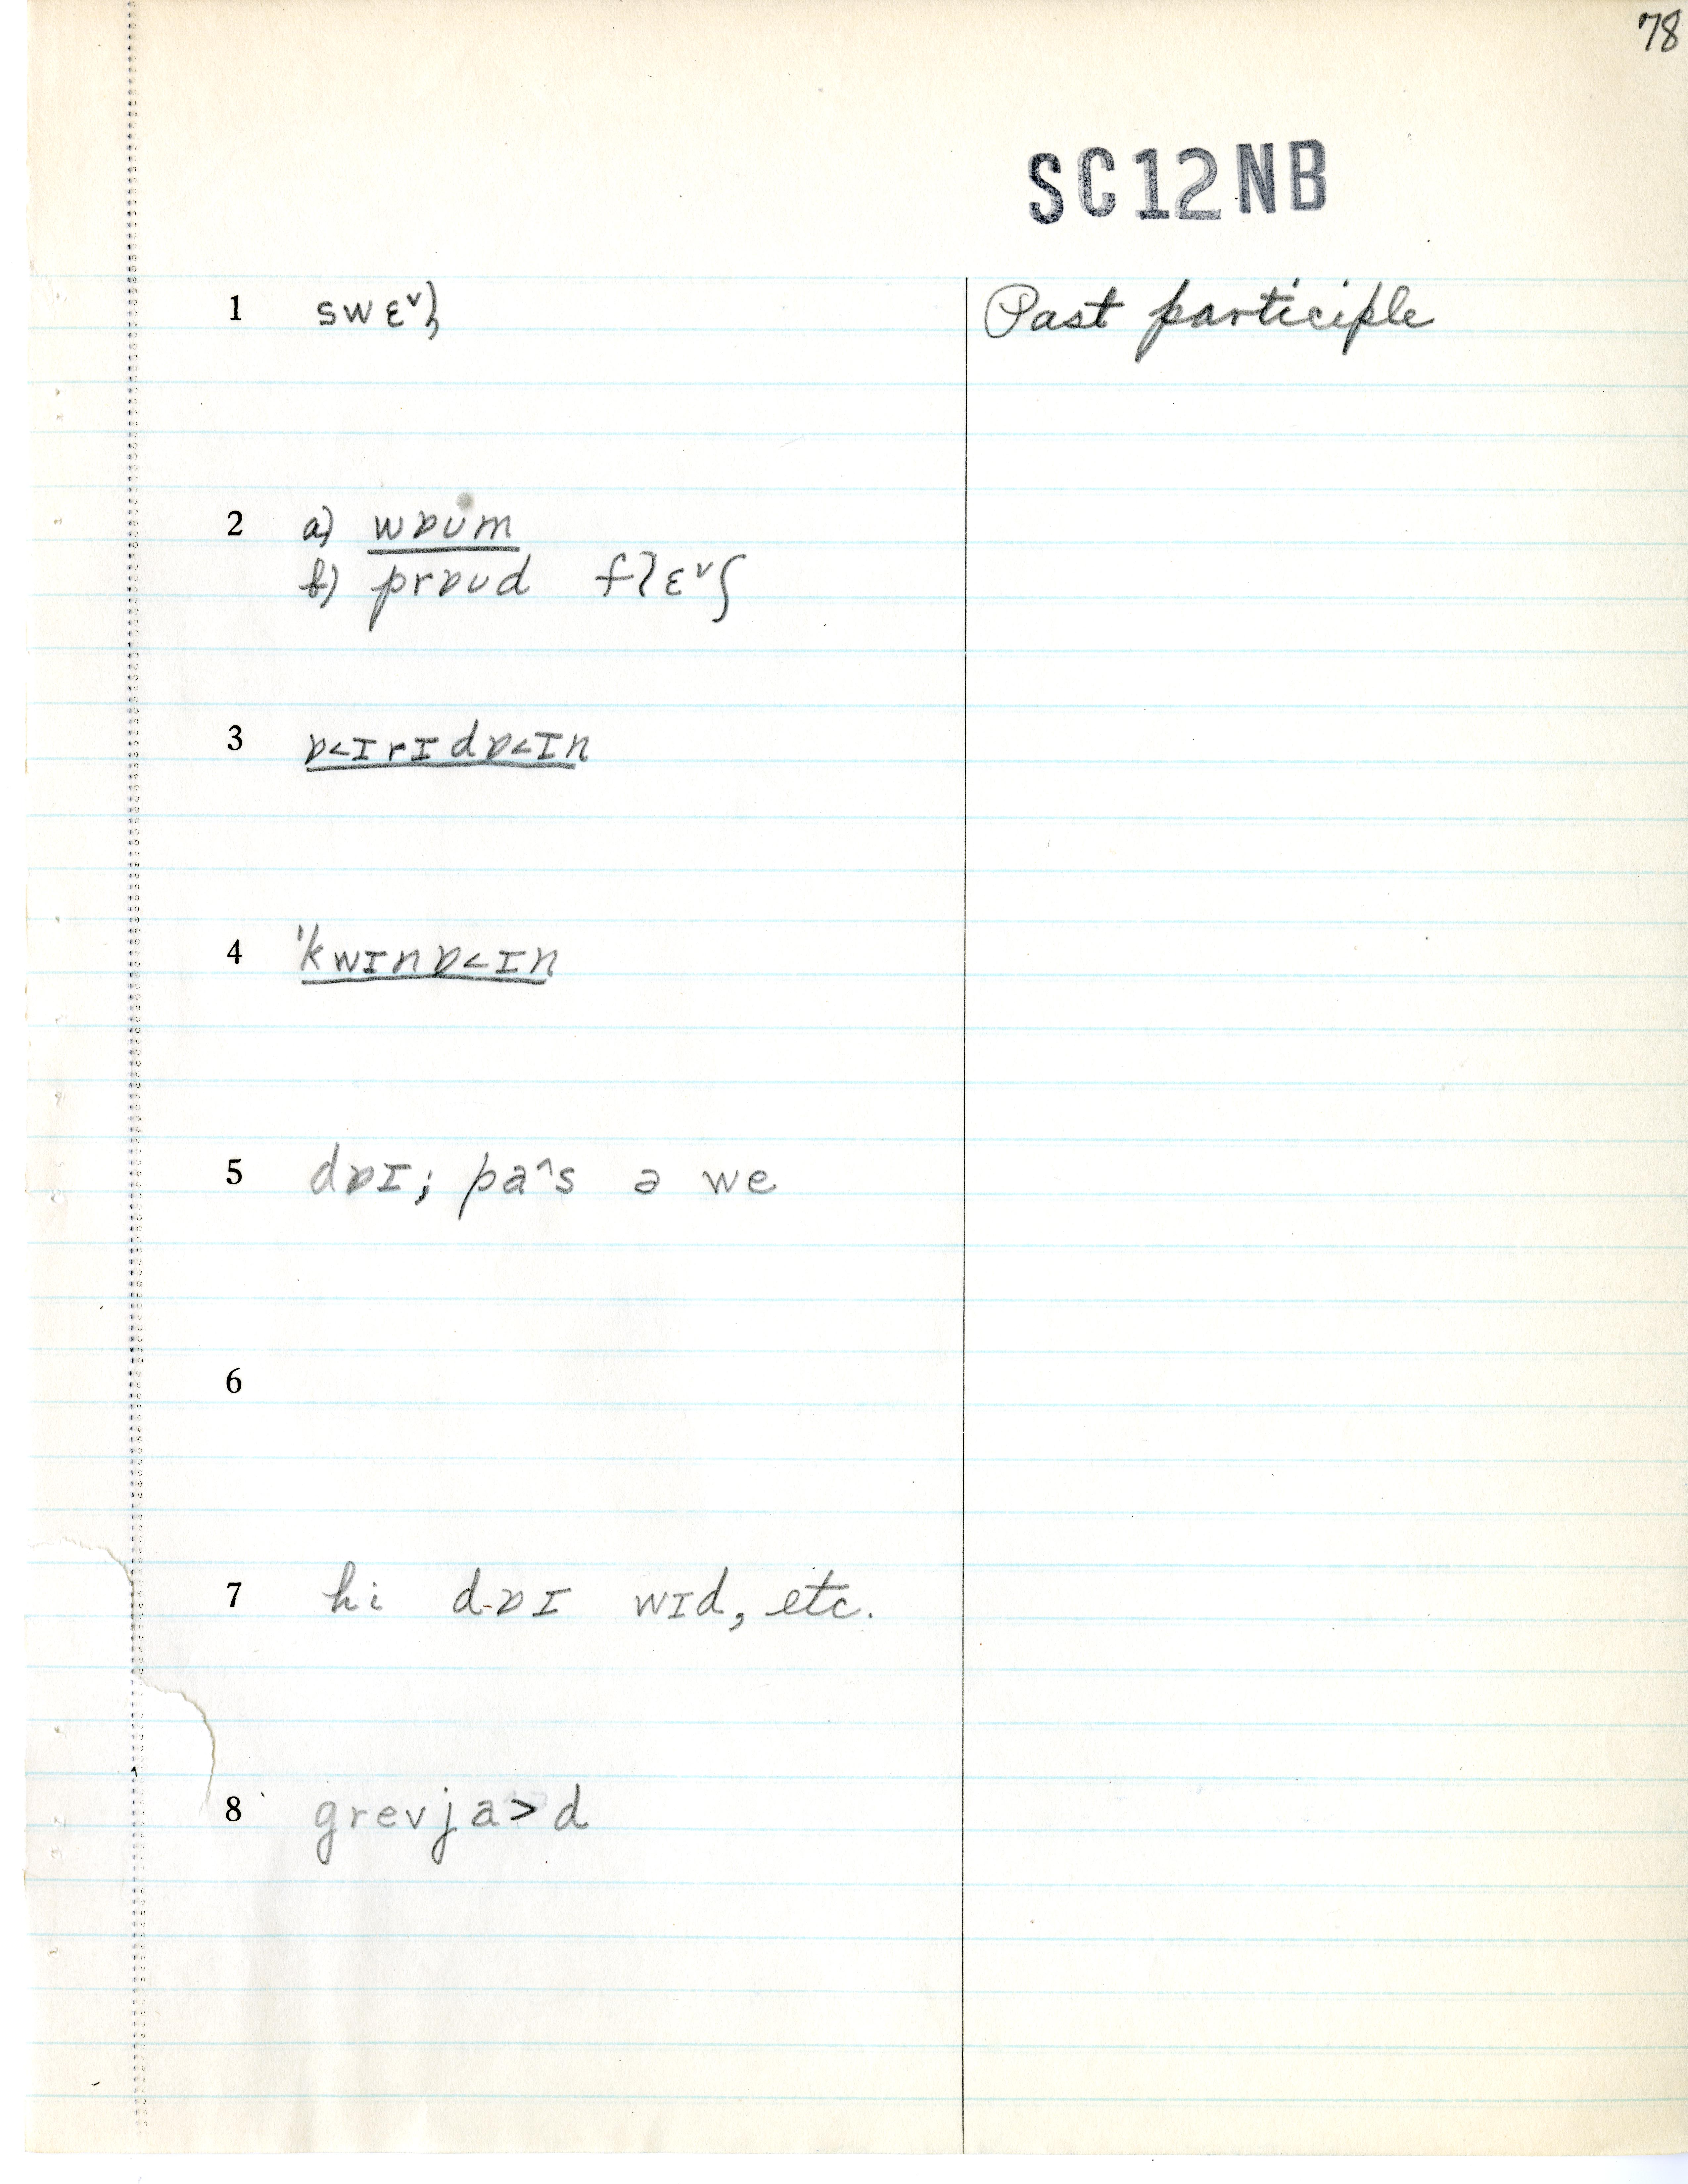 78
SC12NB
1 swɛ˅ɭ Past participle
2 a) wɒʊm
b) prɒʊd flɛ˅ʃ
3 ɒ<ɪrɪdɒ<ɪn
4 'kwɪnɒ<ɪn
5 dɒɪ; pa^s ə we
6
7 hi dɒɪ wɪd, etc.
8 grevja>d